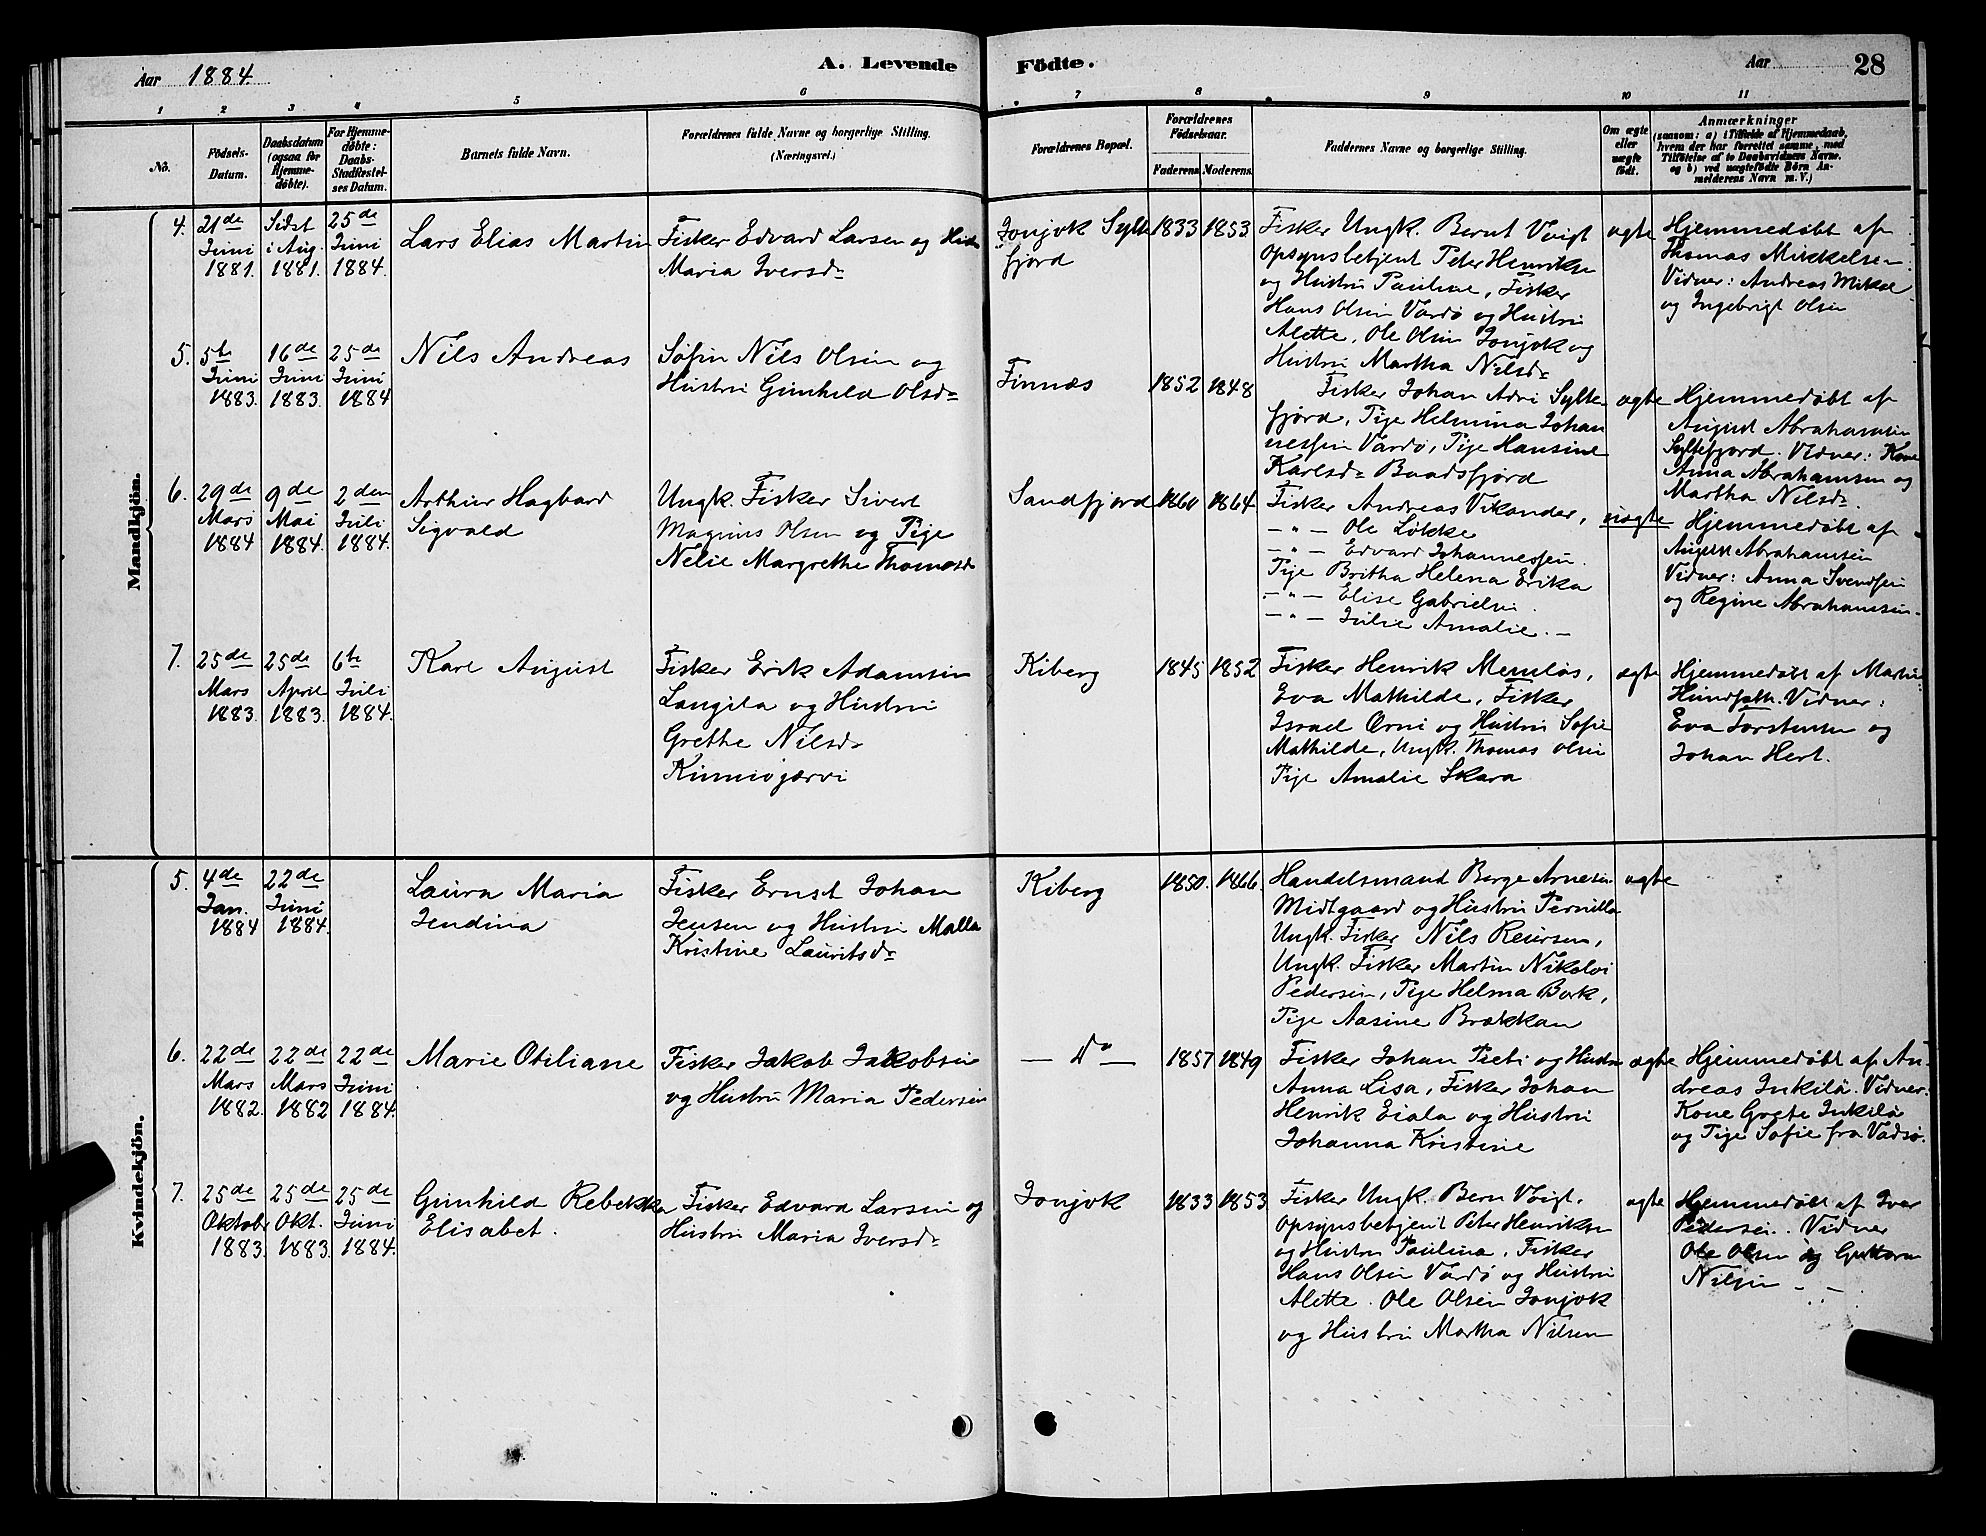 Aar 1884.
A. Levende Födte.
Aar 28
1 2 3 4 5 6 7 8 9 10 11
No.
Födsels-Datum.
Daabsdatum (ogsaa for Hjemmedöbte).
For Hjemmedöbte: Daabs-Stadfæstelses Datum.
Barnets fulde Navn.
Forældrenes fulde Navne og borgerlige Stilling.
(Næringsvei.)
Forældrenes Bopæl.
Forældrenes Födselsaar.
Faderens. Moderens.
Faddernes Navne og borgerlige Stilling.
Om ægte eller uægte født.
Anmærkninger
(saasom: a) i Tilfælde af Hjemmedaab, hvem der har forrettet samme, med Tilföielse af to Daabsvidners Navne, og b) ved uægtefödte Börn Anmelderens Navn m. V.)
Mandkjön.
4. 21de Juni 1881.
Sidst i Aug. 1881.
25de Juni 1884.
Lars Elias Martin
Fisker Edvard Larsen og
Maria Iversdr
Jonjok Sylte
fjord
1833 1853
Fisker Ungk. Bernt Voigt
Opsynsbetjent Peter Henriksen
og Hustru Pauline, Fisker
Hans Olsen Vardö og Hustru
Alette, Ole Olsen Jonjok og
Hustru Martha Nilsdr
ægte
Hjemmedøbt af
Thomas Mikkelsen.
Vidner: Andreas Mikal
og Ingebrigt Olsen
5. 5te Juni 1883.
16de Juni 1883.
25de Juni 1884
Nils Andreas
Søfin Nils Olsen og
Hustru Gunhild Olsdr
Finnæs
1852 1848
Fisker Johan Adri Sylte-
fjord, Pige Helmina Johan
nessen Vardö, Pige Hansine
Karlsdr Baadsfjord
ægte
Hjemmedøbt af
August Abrahamsen
Syltefjord. Vidner: Kone
Anna Abrahamsen og
Martha Nilsdr.
6. 29de Mars 1884
9de Mai 1884.
2den Juli 1884.
Arthur Hagbard
Sigvald
Ungk. Fisker Sivert
Magnus Olsen og Pige
Nelie Margrethe Thomasdr
Sandfjord
1860 1864
Fisker Andreas Vikander,
— " — Ole Løkke
— " — Edvard Johannessen.
Pige Britha Helena Erika
— " — Elise Gabrielsen.
— " — Julie Amalie. —
uægte
Hjemmedøbt af
August Abrahamsen
Vidner: Anna Svendsen
og Regine Abrahamsen.
7. 25de Mars 1883.
25de April 1883.
6te Juli 1884.
Karl August
Fisker Erik Adamsen
Langila og Hustru
Grethe Nilsdr
Kinniojærvi
Kiberg
1845 1852
Fisker Henrik Menlös,
Eva Mathilde, Fisker
Israel Orni og Hustru Sofie
Mathilde, Ungk. Thomas Olsen
Pige Amalie Skara
ægte
Hjemmedøbt af
Hundfath. Vidner:
Eva Torstensen og
Johan Hert.
Kvindekjön.
5. 4de Jan. 1884
22de Juni 1884.
Laura Maria
Jendina
Fisker Ernst Johan
Jensen og Hustru Malla
Kristine Lauritsdr
Kiberg
1850. 1866.
Handelsmand Berge Arnesen
Midtgaard og Hustru Pernilla
Ungk. Fisker Nils Reiersen,
Ungk. Fisker Martin Nikolai
Pedersen, Pige Helma Bork,
Pige Aasine Brækkan
ægte
6. 22de Mars 1882.
22de Mars 1882
22de Juni 1884.
Marie Otiliane
Fisker Jakob Jakobsen
og Hustru Maria Pedersen
— Do —
1857 1849
Fisker Johan Pieti og Hustru
Anna Lisa, Fisker Johan
Henrik Eiala og Hustru
Johanna Kristine
ægte
Hjemmedøbt af An-
dreas Inkilä. Vidner:
Kone Grete Inkilä
og Pige Sofie fra Vadsö.
7. 25de Oktober 1883.
25de Okt. 1883.
25de Juni 1884.
Gunhild Rebekka
Elisabet.
Fisker Edvard Larsen og
Hustru Maria Iversdr
Jonjok
1833 1853
Fisker Ungk. Bern Voigt.
Opsynsbetjent Peter Henriksen
og Hustru Paulina. Fisker
Hans Olsen Vardö og Hustru
Alette. Ole Olsen Jonjok
og Hustru Martha Nilsen
ægte
Hjemmedøbt af Iver
Pedersen. Vidner
Ole Olsen og Guttorm
Nilsen - -